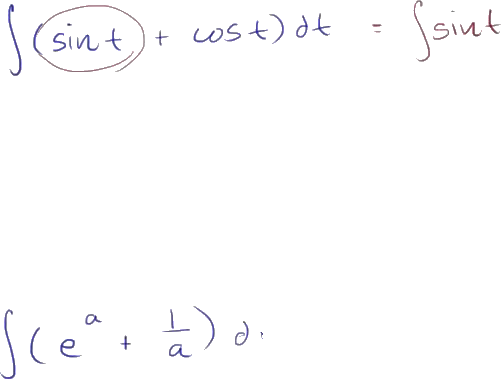 ∫(sin t + cos t) dt = ∫sin t
∫(e^a + 1/a) d